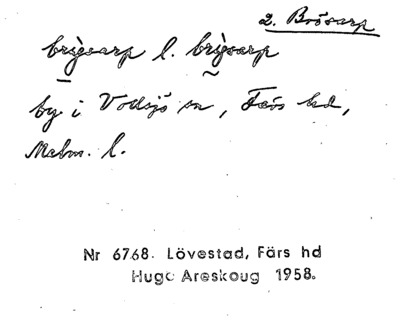 2. Brösarp
brỳsarp l. brỳsarp
by i Vollsjö sn, Färs hd,
Malm. l.
Nr 6768. Lövestad, Färs hd
Hugo Areskoug 1958.